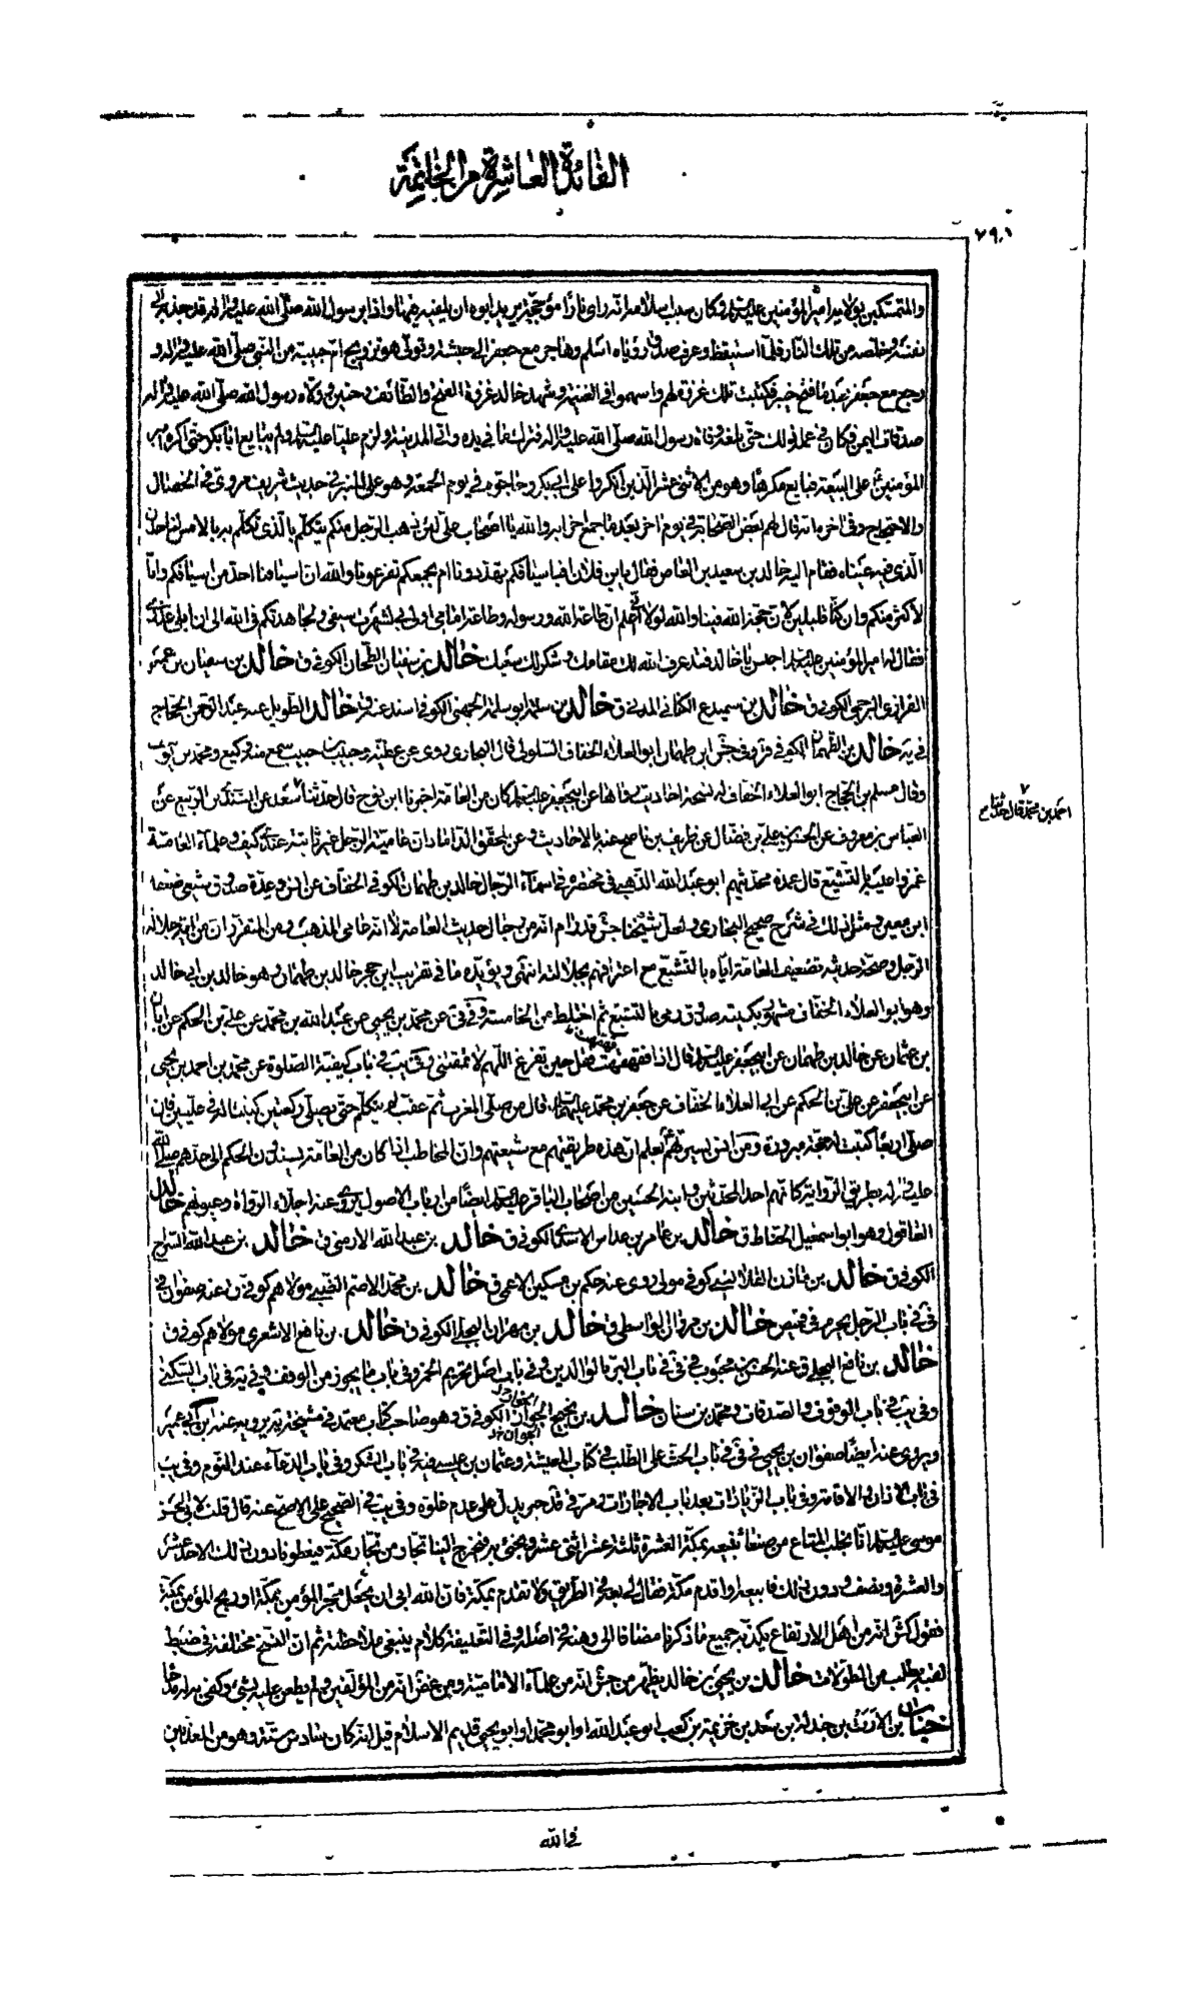 الفائدة العاشرة من الخاتمة
٧٩١
والمتمسكين بولاء أمير المؤمنين عليه السلام وكان سبب إسلامه انه رأى نارا مؤججة يريد ابوه ان يلقيه فيها واذا برسول الله صلى الله عليه وآله قد جذبه إلى
نفسه وخلصه من تلك النار فلما استيقظ وعرف صدق رؤياه اسلم وهاجر مع جعفر الى حبشة وتولى هو تزويج ام حبيبة من النبي صلى الله عليه وآله و
رجع مع جعفر بعد ما فتح خيبر فكتبت تلك غزوة لهم واسهموا في الغنيمة وشهد خالد غزوة الفتح والطائف وحنين وولاه رسول الله صلى الله عليه وآله
صدقات اليمن فكان في عمله ذلك حتى بلغه وفاة رسول الله صلى الله عليه وآله فترك ما في يده واتى المدينة ولزم عليا عليه السلام ولم يبايع ابا بكر حتى اكره امير
المؤمنين على البيعة فبايع مكرها وهو من الاثنى عشر الذين انكروا على ابي بكر وحاجوه في يوم الجمعة وهو على المنبر في حديث شريف مروي في الخصال
والاحتجاج وفي اخره انه قال لهم بعض الصحابة في يوم اخر بعد ما جمع اخرا به والله يا اصحاب علي لئن ذهب الرجل منكم يتكلم بالذي تكلم به بالامس لناخذن
الذي فيه عيناه فقام اليه خالد بن سعيد بن العاص فقال يا بن فلان افباسيافكم تهددونا ام بجمعكم تفزعونا والله ان اسيافنا احد من اسيافكم وانا
لاكثر منكم وان كنا قليلين لان حجة الله فينا والله لولا اني اعلم ان طاعة الله ورسوله وطاعة امامي اولى بي لشهرت سيفي ولجاهدتكم في الله الى ان ابلي عذري
فقال له امير المؤمنين عليه السلام اجلس يا خالد فقد عرف الله لك مقامك وشكر لك سعيك خالد بن سفيان الطحان الكوفي ق خالد بن سفيان بن عمير
الفزاري البرجمي الكوفي ق خالد بن سميدع الكناني المدني ق خالد بن سلمة ابو سلمة الجهني الكوفي اسند عنه ق خالد الطويل عنه عبد الرحمن الحجاج
في يه خالد بن طهمان الكوفي قر وفي جش ابن طهمان ابو العلاء الخفاف السلولي قال البخاري روى عن عطية وحبيب بن حبيب سمع منه وكيع ومحمد بن يوسف
وقال مسلم بن الحجاج ابو العلاء الخفاف له نسخة احاديث رواها عن ابي جعفر عليه السلام كان من العامة اخبرنا ابن نوح قال حدثنا سعد عن السندي بن الربيع عن
احمد بن محمد قال حدثنا ح
العباس بن معروف عن الحسن بن علي بن فضال عن ظريف بن ناصح عنه بالاحاديث وعن المحقق الداماد ان عامية الرجل غير ثابتة عندي كيف وعلماء العامة
غمزوا عليه بالتشيع قال عمدة محدثيهم ابو عبد الله الذهبي في مختصره في اسماء الرجال خالد بن طهمان الكوفي الخفاف عن انس وعدة صدوق شيعي ضعفه
ابن معين ومثل ذلك في شرح صحيح البخاري ولعل شيخنا جش قد رام انه من رجال حديث العامة لا انه عامي المذهب ومن المتقررات من انه جلالة
الرجل وصحة حديثه تضعيف العامة اياه بالتشيع مع اعترافهم بجلالته انتهى ويؤيده ما في تقريب ابن حجر خالد بن طهمان وهو خالد بن ابي خالد
وهو ابو العلاء الخفاف مشهور بكنيته صدوق رمي بالتشيع ثم اختلط من الخامسة وفي في عن محمد بن يحيى عن عبد الله بن محمد عن علي بن الحكم عن ابان
بن عثمان عن خالد بن طهمان عن ابي جعفر عليه السلام قال اذا قهقهت فقل حين تفرغ اللهم لا تمقتني وفي يب في باب كيفية الصلوة عن محمد بن احمد بن يحيى
عن ابي جعفر عن علي بن الحكم عن ابي العلاء الخفاف عن جعفر بن محمد عليهما السلام قال من صلى المغرب ثم عقب لم يتكلم حتى يصلي ركعتين كتبتا له في عليين فان
صلى اربعا كتبت له حجة مبرورة ومن انس بسيرتهم تعلم ان هذه طريقتهم مع شيعتهم وان المخاطب اذا كان من العامة يسندون الحكم الى جدهم صلى الله
عليه وآله بطريق الرواية كانهم احد المحدثين وابنه الحسين من اصحاب الباقر عليه السلام ايضا من ارباب الاصول يروي عنه اجلاء الرواة وعيونهم خالد
العاقولي وهو ابو اسمعيل الخياط ق خالد بن عامر بن عداس الاسدي الكوفي ق خالد بن عبد الله الارمني ق خالد بن عبد الله السراج
الكوفي ق خالد بن مازن القلانسي كوفي مولى روى عنه حكم بن مسكين الاعمى ق خالد بن محمد الاصم الضبي مولاهم كوفي ق عنه صفوان في
في في باب الرجل يحرم في قميص خالد بن مروان الواسطي ق خالد بن مهران البجلي الكوفي ق خالد بن نافع الاشعري مولاهم كوفي ق
خالد بن نافع البجلي ق عنه الحسن بن محبوب في في في باب البر بالوالدين وفي باب اصل تحريم الخمر وفي باب ما يجوز من الوقف وفي يه في باب السكنى
وفي يب في باب الوقوف والصدقات ومحمد بن سنان خالد بن نجيح الجوان الكوفي ق وهو صاحب كتاب معتمد في مشيخة يه يرويه عنه ابن ابي عمير
الجوان خ ل
ويروي عنه ايضا صفوان بن يحيى في في في باب الحث على الطلب في كتاب المعيشة وعثمان بن عيسى فيه في باب الشكر وفي باب الدعاء عند النوم وفي يب
في باب الاذان والاقامة وفي باب الزيادات بعد باب الاجازات
موسى عليه السلام انا نجلب المتاع من صنعاء نبيعه بمكة العشرة ثلثة عشر اثنى عشر ونجيء به فيخرج الينا تجار من تجار مكة فيعطونا دون ذلك الاحد عشر
والعشرة ونصف ودون ذلك فابيعه او اقدم مكة فقال لي بعه في الطريق ولا تقدم به مكة فان الله ابى ان يجعل متجر المؤمن بمكة او ربح المؤمن بمكة
فقول كش انه من اهل الارتفاع يكذبه جميع ما ذكرنا مضافا الى وهنه في اصله وفي التعليقة كلام ينبغي ملاحظته ثم ان النسخ مختلفة في ضبط
لقبه يطلب من المطولات خالد بن يحيى بن خالد يظهر من جش انه من علماء الامامية ومن غض انه من المؤلفين ولم يطعن عليه بشيء وكفى به مدحا
خباب بن الارت بن جندلة بن سعد بن خزيمة بن كعب ابو عبد الله او ابو محمد او ابو يحيى قديم الاسلام قيل انه كان سادس ستة وهو من المعذبين
في الله